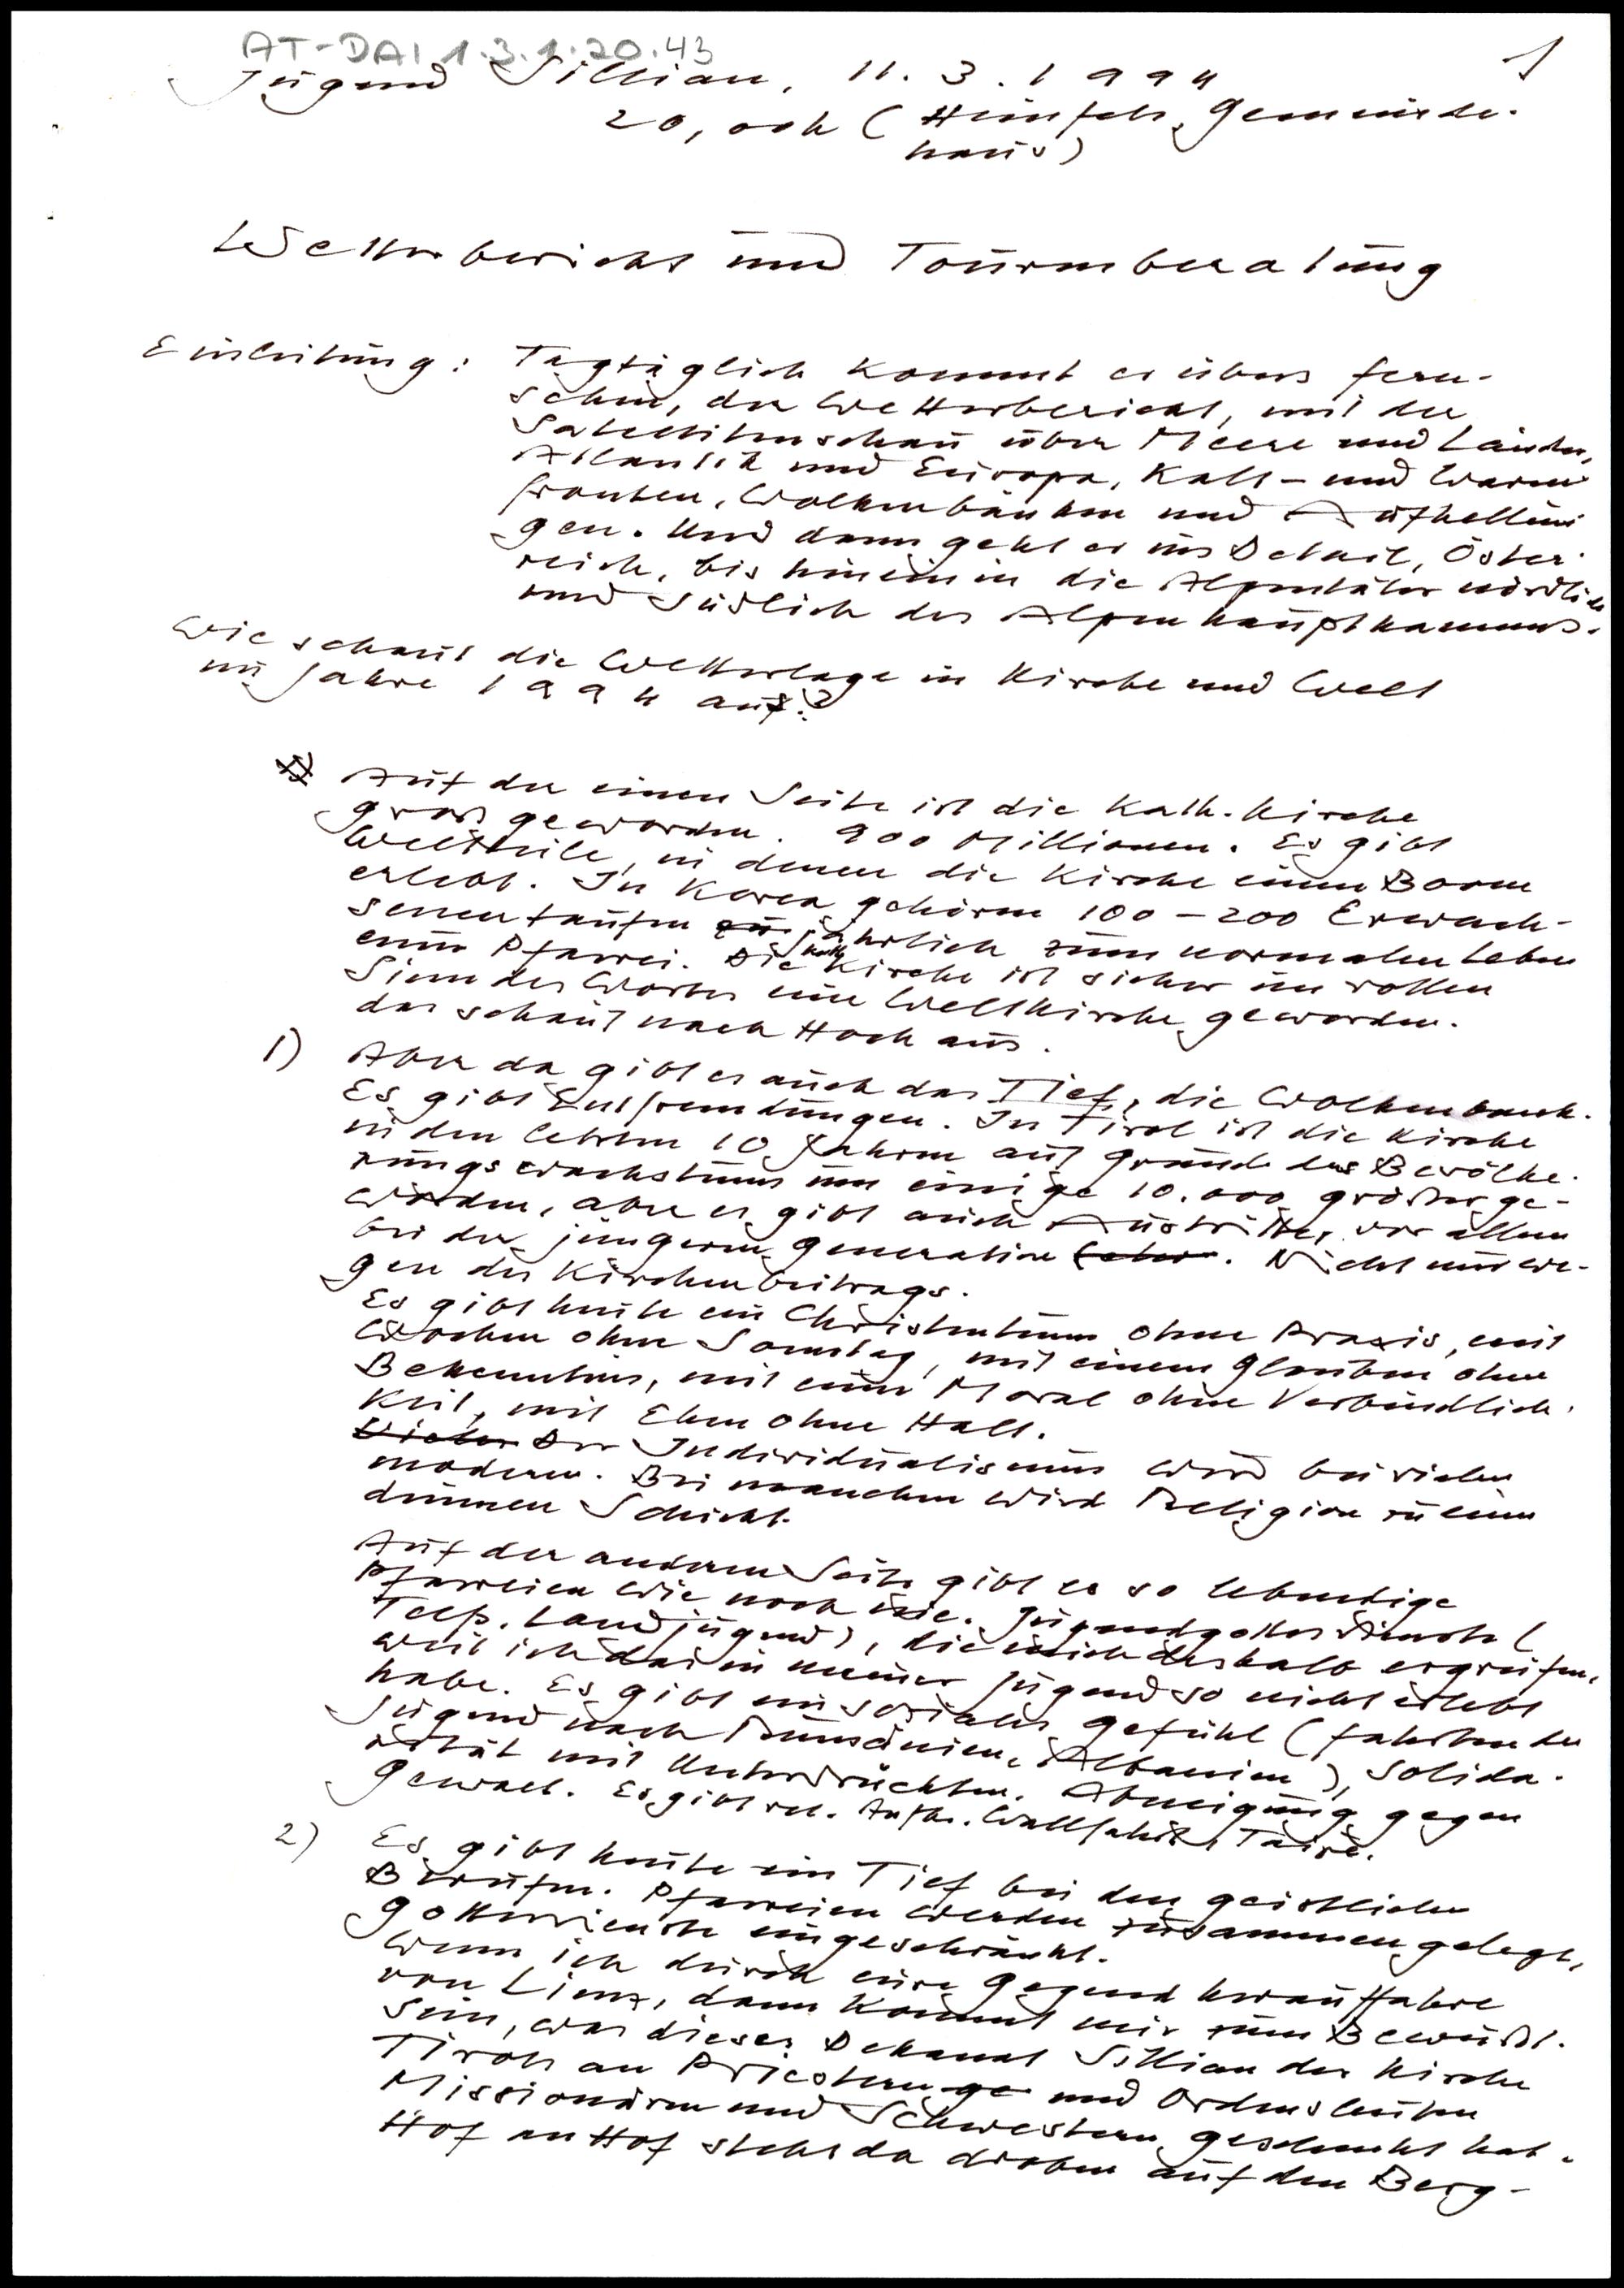 AT-DAI 1.3.1.20.43
1
Jugend Sillian, 11.3.1994
20,00h (Heinfels, Gemeinde-
haus)
Wetterbericht und Tourenberatung
Einleitung: Tagtäglich kommt er übers Fern-
sehen, der Wetterbericht, mit der
Satellitenschau über Meere und Länder,
Atlantik und Europa, Kalt- und Warm-
fronten, Wolkenbänken und Aufhellun-
gen. Und dann geht es ins Detail, Öster-
reich, bis hinein in die Alpentäler nördlich
und südlich des Alpenhauptkammes.
Wie schaut die Wetterlage in Kirche und Welt
im Jahre 1994 aus?
Auf der einen Seite ist die Kath. Kirche
groß geworden. 900 Millionen. Es gibt
Weltteile, in denen die Kirche einen Boom
erlebt. In Korea gehören 100-200 Erwach-
senentaufen zu jährlich zum normalen Leben
einer Pfarrei. Die kath. Kirche ist sicher im vollen
Sinn des Wortes eine Weltkirche geworden.
das schaut nach Hoch aus.
1) Aber da gibt es auch das Tief, die Wolkenbank.
Es gibt Entfremdungen. In Tirol ist die Kirche
in den letzten 10 Jahren auf Grund des Bevölke-
rungswachstums um einige 10.000 größer ge-
worden, aber es gibt auch Austritte, vor allem
bei der jüngeren Generation. Nicht nur we-
gen des Kirchenbeitrags.
Es gibt heute ein Christentum ohne Praxis, mit
Wochen ohne Sonntag, mit einem Glauben ohne
Bekenntnis, mit einer Moral ohne Verbindlich-
keit, mit Ehen ohne Halt.
Der Individualismus wird bei vielen
modern. Bei manchen wird Religion zu einer
dünnen Schicht.
Auf der anderen Seite gibt es so lebendige
Pfarreien wie noch nie. Jugendgottesdienste (
Telfs, Landjugend), die mich deshalb ergreifen,
weil ich das in meiner Jugend so nicht erlebt
habe. Es gibt ein soziales Gefühl (Fahrten der
Jugend nach Rumänien, Albanien), Solida-
rität mit Unterdrückten. Abneigung gegen
Gewalt. Es gibt rel. Aufbr. Wallfahrt, Taizé.
2) Es gibt heute ein Tief bei den geistlichen
Berufen. Pfarreien werden zusammengelegt,
Gottesdienste eingeschränkt.
Wenn ich durch eure Gegend herauffahre
von Lienz, dann kommt mir zum Bewußt-
sein, was dieses Dekanat Sillian der Kirche
Tirols an Priestern ge und Ordensleuten
Missionären und Schwestern geschenkt hat.
Hof an Hof steht da droben auf den Berg-